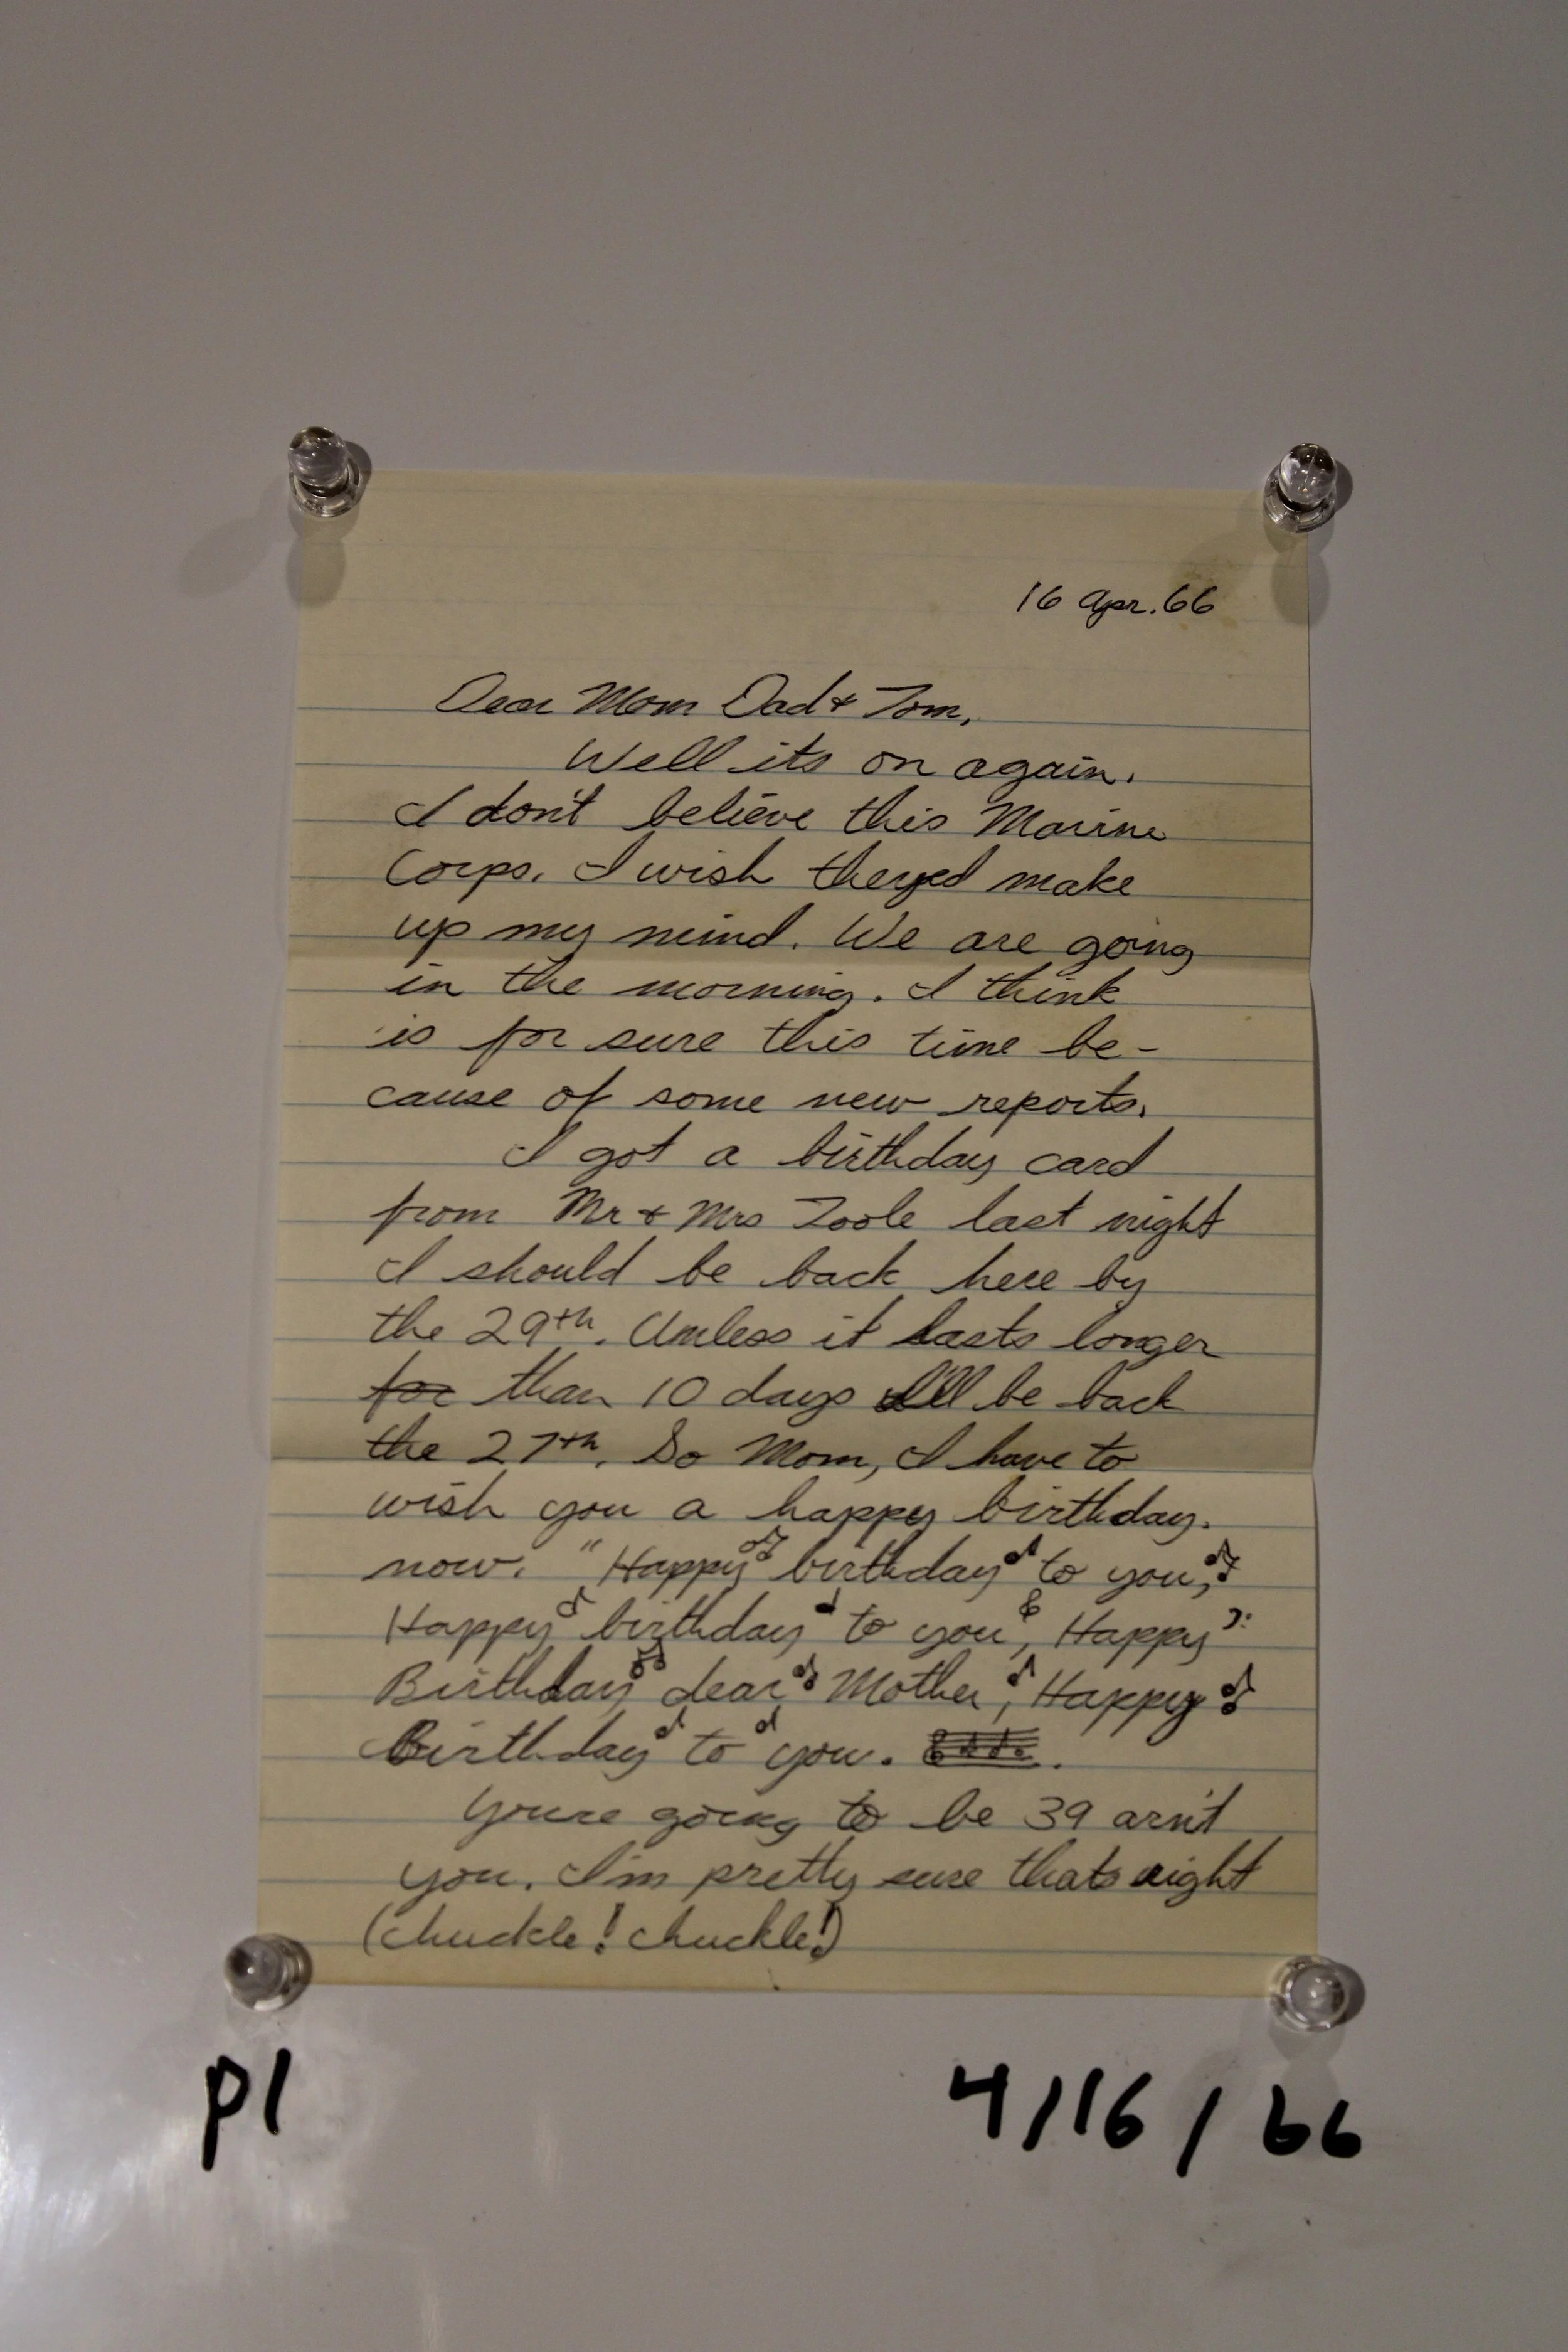 16 Apr. 66
Dear Mom Dad & Tom,
Well its on again.
I don't believe this Marine
Corps. I wish theyed make
up my mind. We are going
in the morning. I think
is for sure this time be-
cause of some new reports.
I got a birthday card
from Mr & Mrs Toole last night
I should be back here by
the 29th. Unless it lasts longer
for than 10 days I'll be back
the 27th. So Mom, I have to
wish you a happy birthday.
now. "Happy birthday to you,
Happy birthday to you, Happy
Birthday dear Mother, Happy
Birthday to you.
Youre going to be 39 arn't
you. I'm pretty sure thats right
(chuckle! chuckle!)
p1
4/16/66